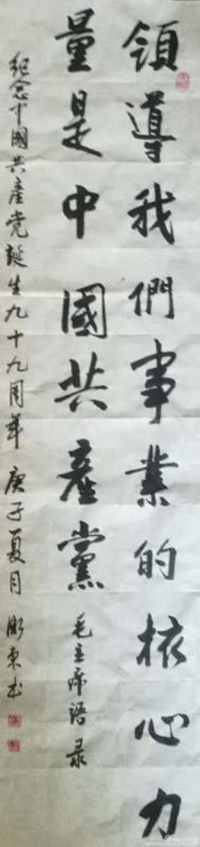 領導我們事業的核心力
量是中國共產黨
毛主席语录
纪念中國共產党誕生九十九周年 庚子夏月 彫東书